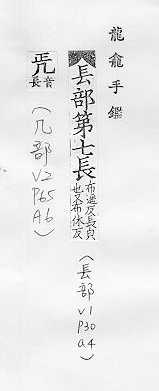 龍龕手鑑
镸部第七長
布遥反長皃
也又布休反
(镸部 V1 P30 a4)
音
長
(几部 V2 P65 A6)